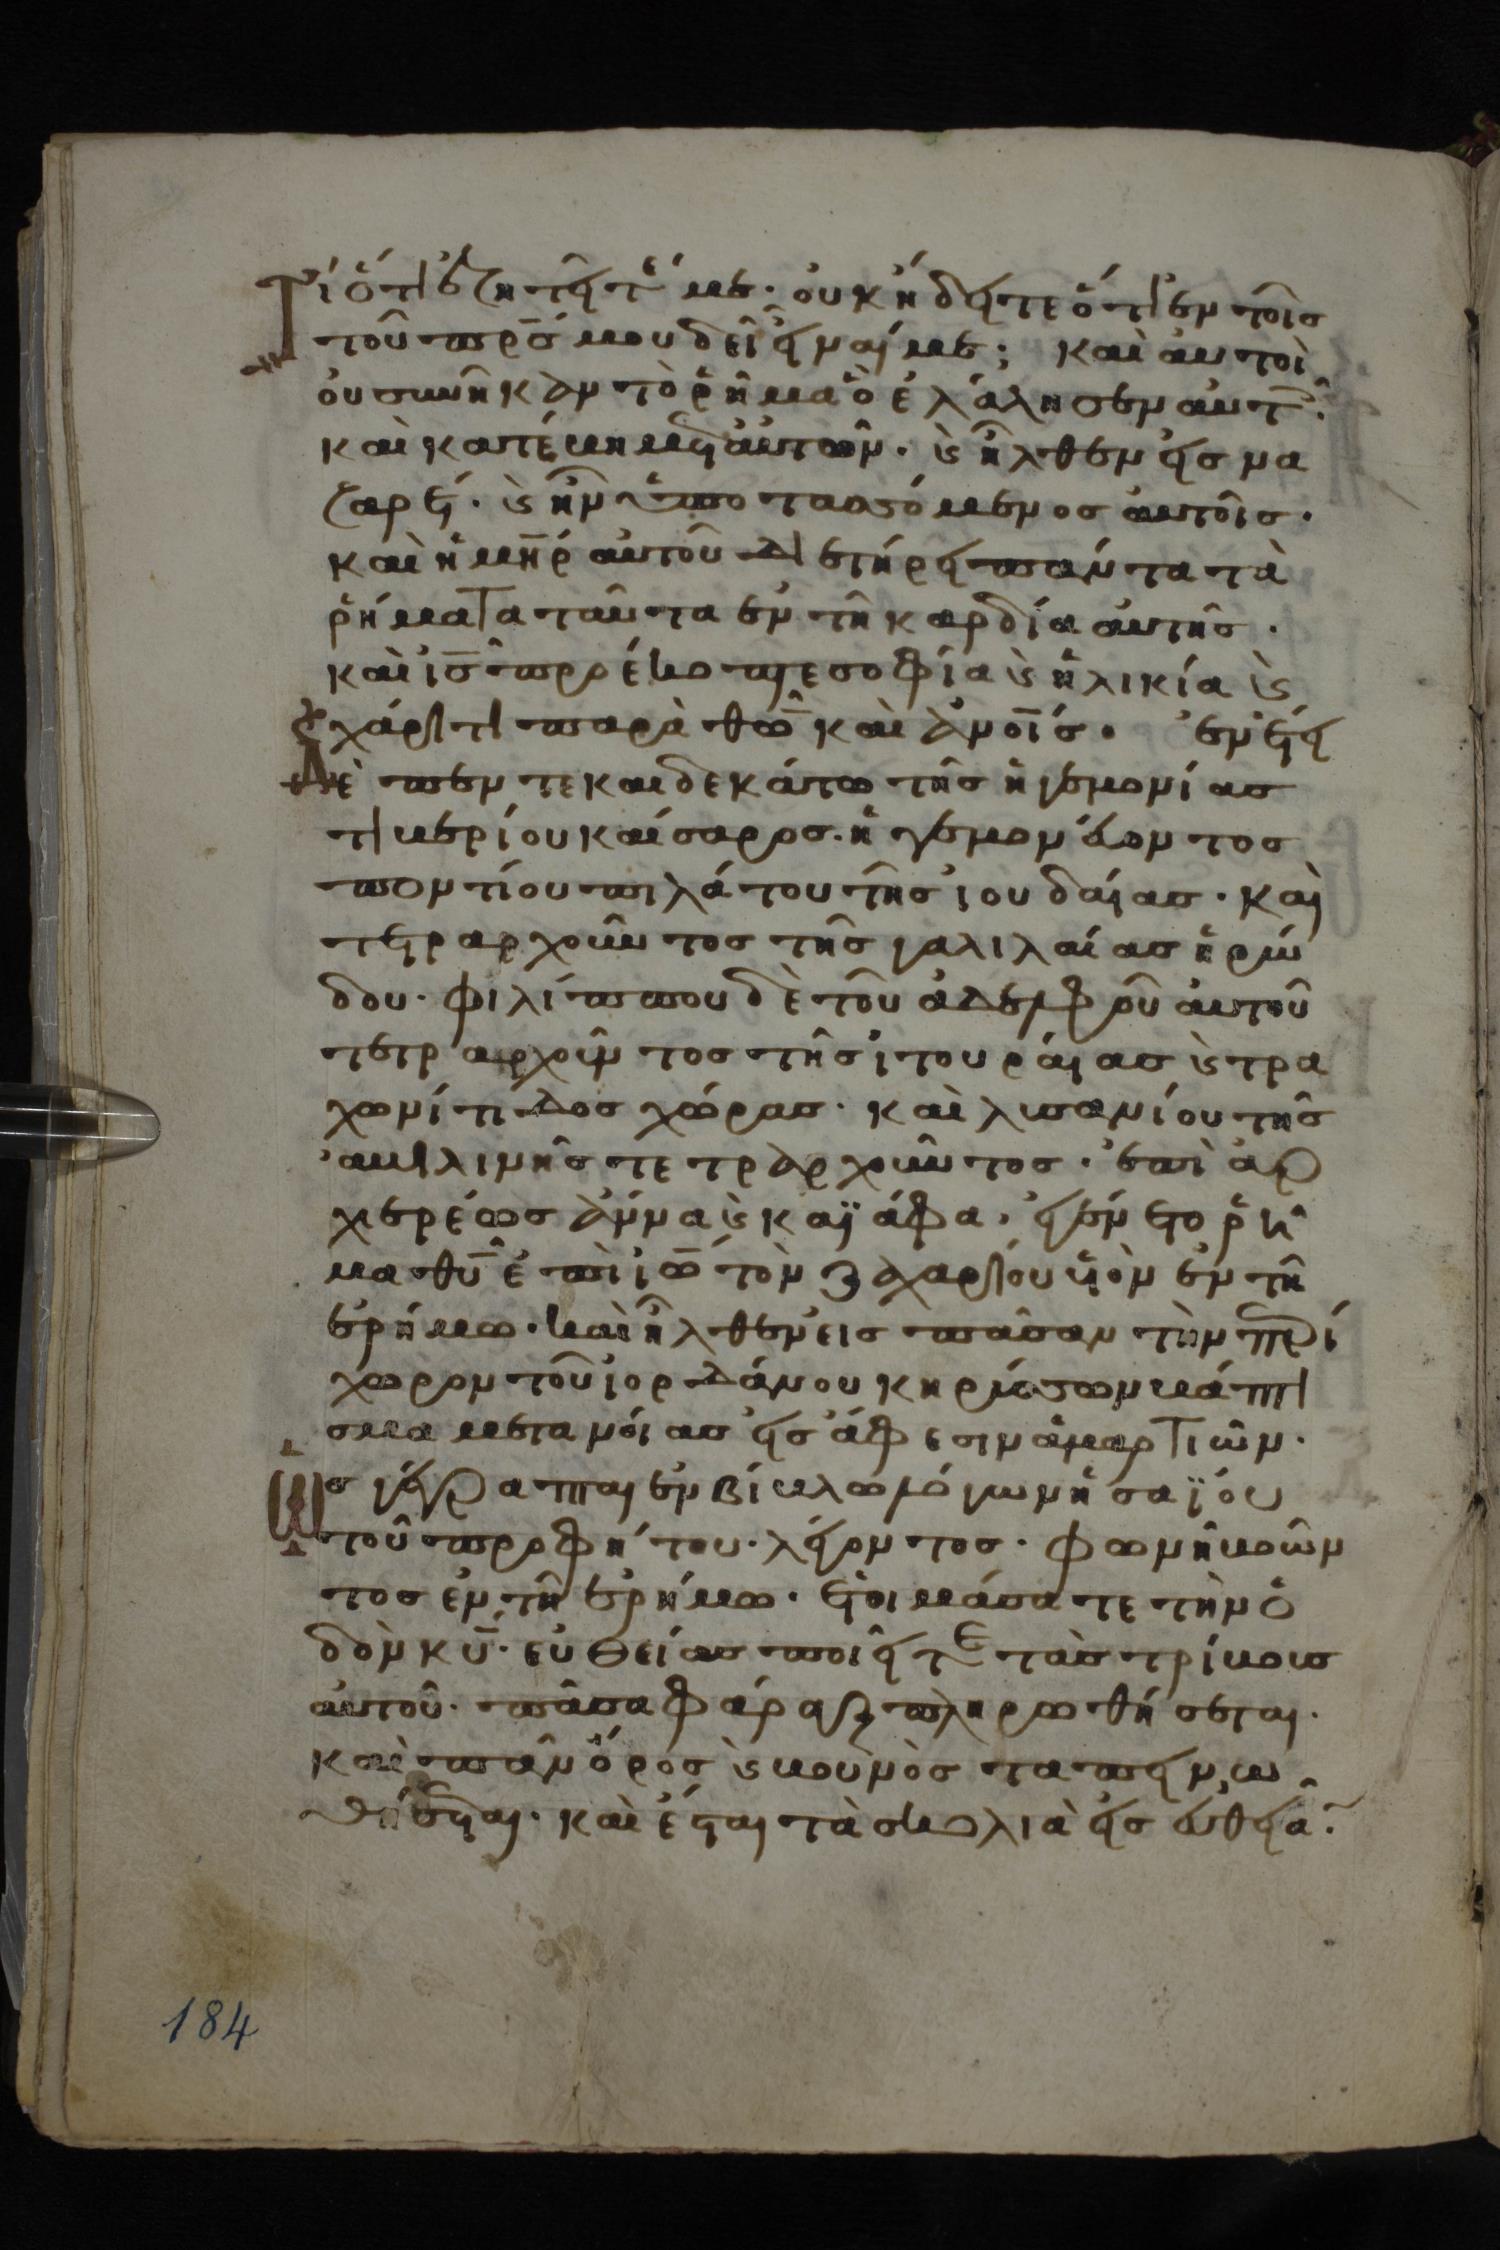 Τί ὅτι ἐζητεῖτέ με· οὐκ ἤδειτε ὅτι ἐν τοῖς
τοῦ πρ̅ς μου δεῖ εἶναί με; καὶ αὐτοὶ
οὐ συνῆκαν τὸ ῥῆμα ὃ ἐλάλησεν αὐτοῖς.
καὶ κατέβη μετ αὐτῶν. καὶ ἦλθεν εἰς να
ζαρέτ. καὶ ἦν ὑποτασσόμενος αὐτοῖς.
καὶ ἡ μη̅ρ αὐτοῦ διετήρει πάντα τὰ
ῥήματα ταῦτα ἐν τῆ καρδία αὐτῆς.
καὶ ι̅ς προέκοπτε σοφία καὶ ἡλικία καὶ
χάριτι παρὰ θ̅ω καὶ ἀν̅οις. ἐν ἔτει
Δὲ πεντεκαιδεκάτω τῆς ἡγεμονίας
τιβερίου καίσαρος. ἡγεμονεύοντος
ποντίου πιλάτου τῆς ἰουδαίας. καὶ
τετραρχοῦντος τῆς γαλιλαίας ἡρώ
δου. φιλίππου δὲ τοῦ ἀδελφοῦ αὐτοῦ
τετραρχοῦντος τῆς ἰτουραίας καὶ τρα
χωνίτιδος χώρας. καὶ λυσανίου τῆς
ἀβιλινῆς τετραρχοῦντος. ἐπὶ ἀρ
χιερέως ἄννα καὶ καϊάφα, ἐγένετο ῥῆ
μα θ̅υ ἐπὶ ι̅ω τὸν ζαχαρίου υἱὸν ἐν τῆ
ἐρήμω. καὶ ἦλθεν εἰς πᾶσαν τὴν περί
χωρον τοῦ ἰορδάνου κηρύσσων βάπτι
σμα μετανοίας εἰς ἄφεσιν ἁμαρτιῶν.
Ὡς γέγραπται ἐν βίβλω λόγων ἡσαΐου
τοῦ προφήτου. λέγοντος. φωνὴ βοῶν
τος ἐν τῆ ἐρήμω. ἑτοιμάσατε τὴν ὁ
δὸν κ̅υ. εὐθείας ποιεῖτε τὰς τρίβους
αὐτοῦ. πᾶσα φάραγξ πληρωθήσεται.
καὶ πᾶν ὄρος καὶ βουνὸς ταπεινω
θήσεται. καὶ ἔσται τὰ σκολιὰ εἰς εὐθεῖαν.
184